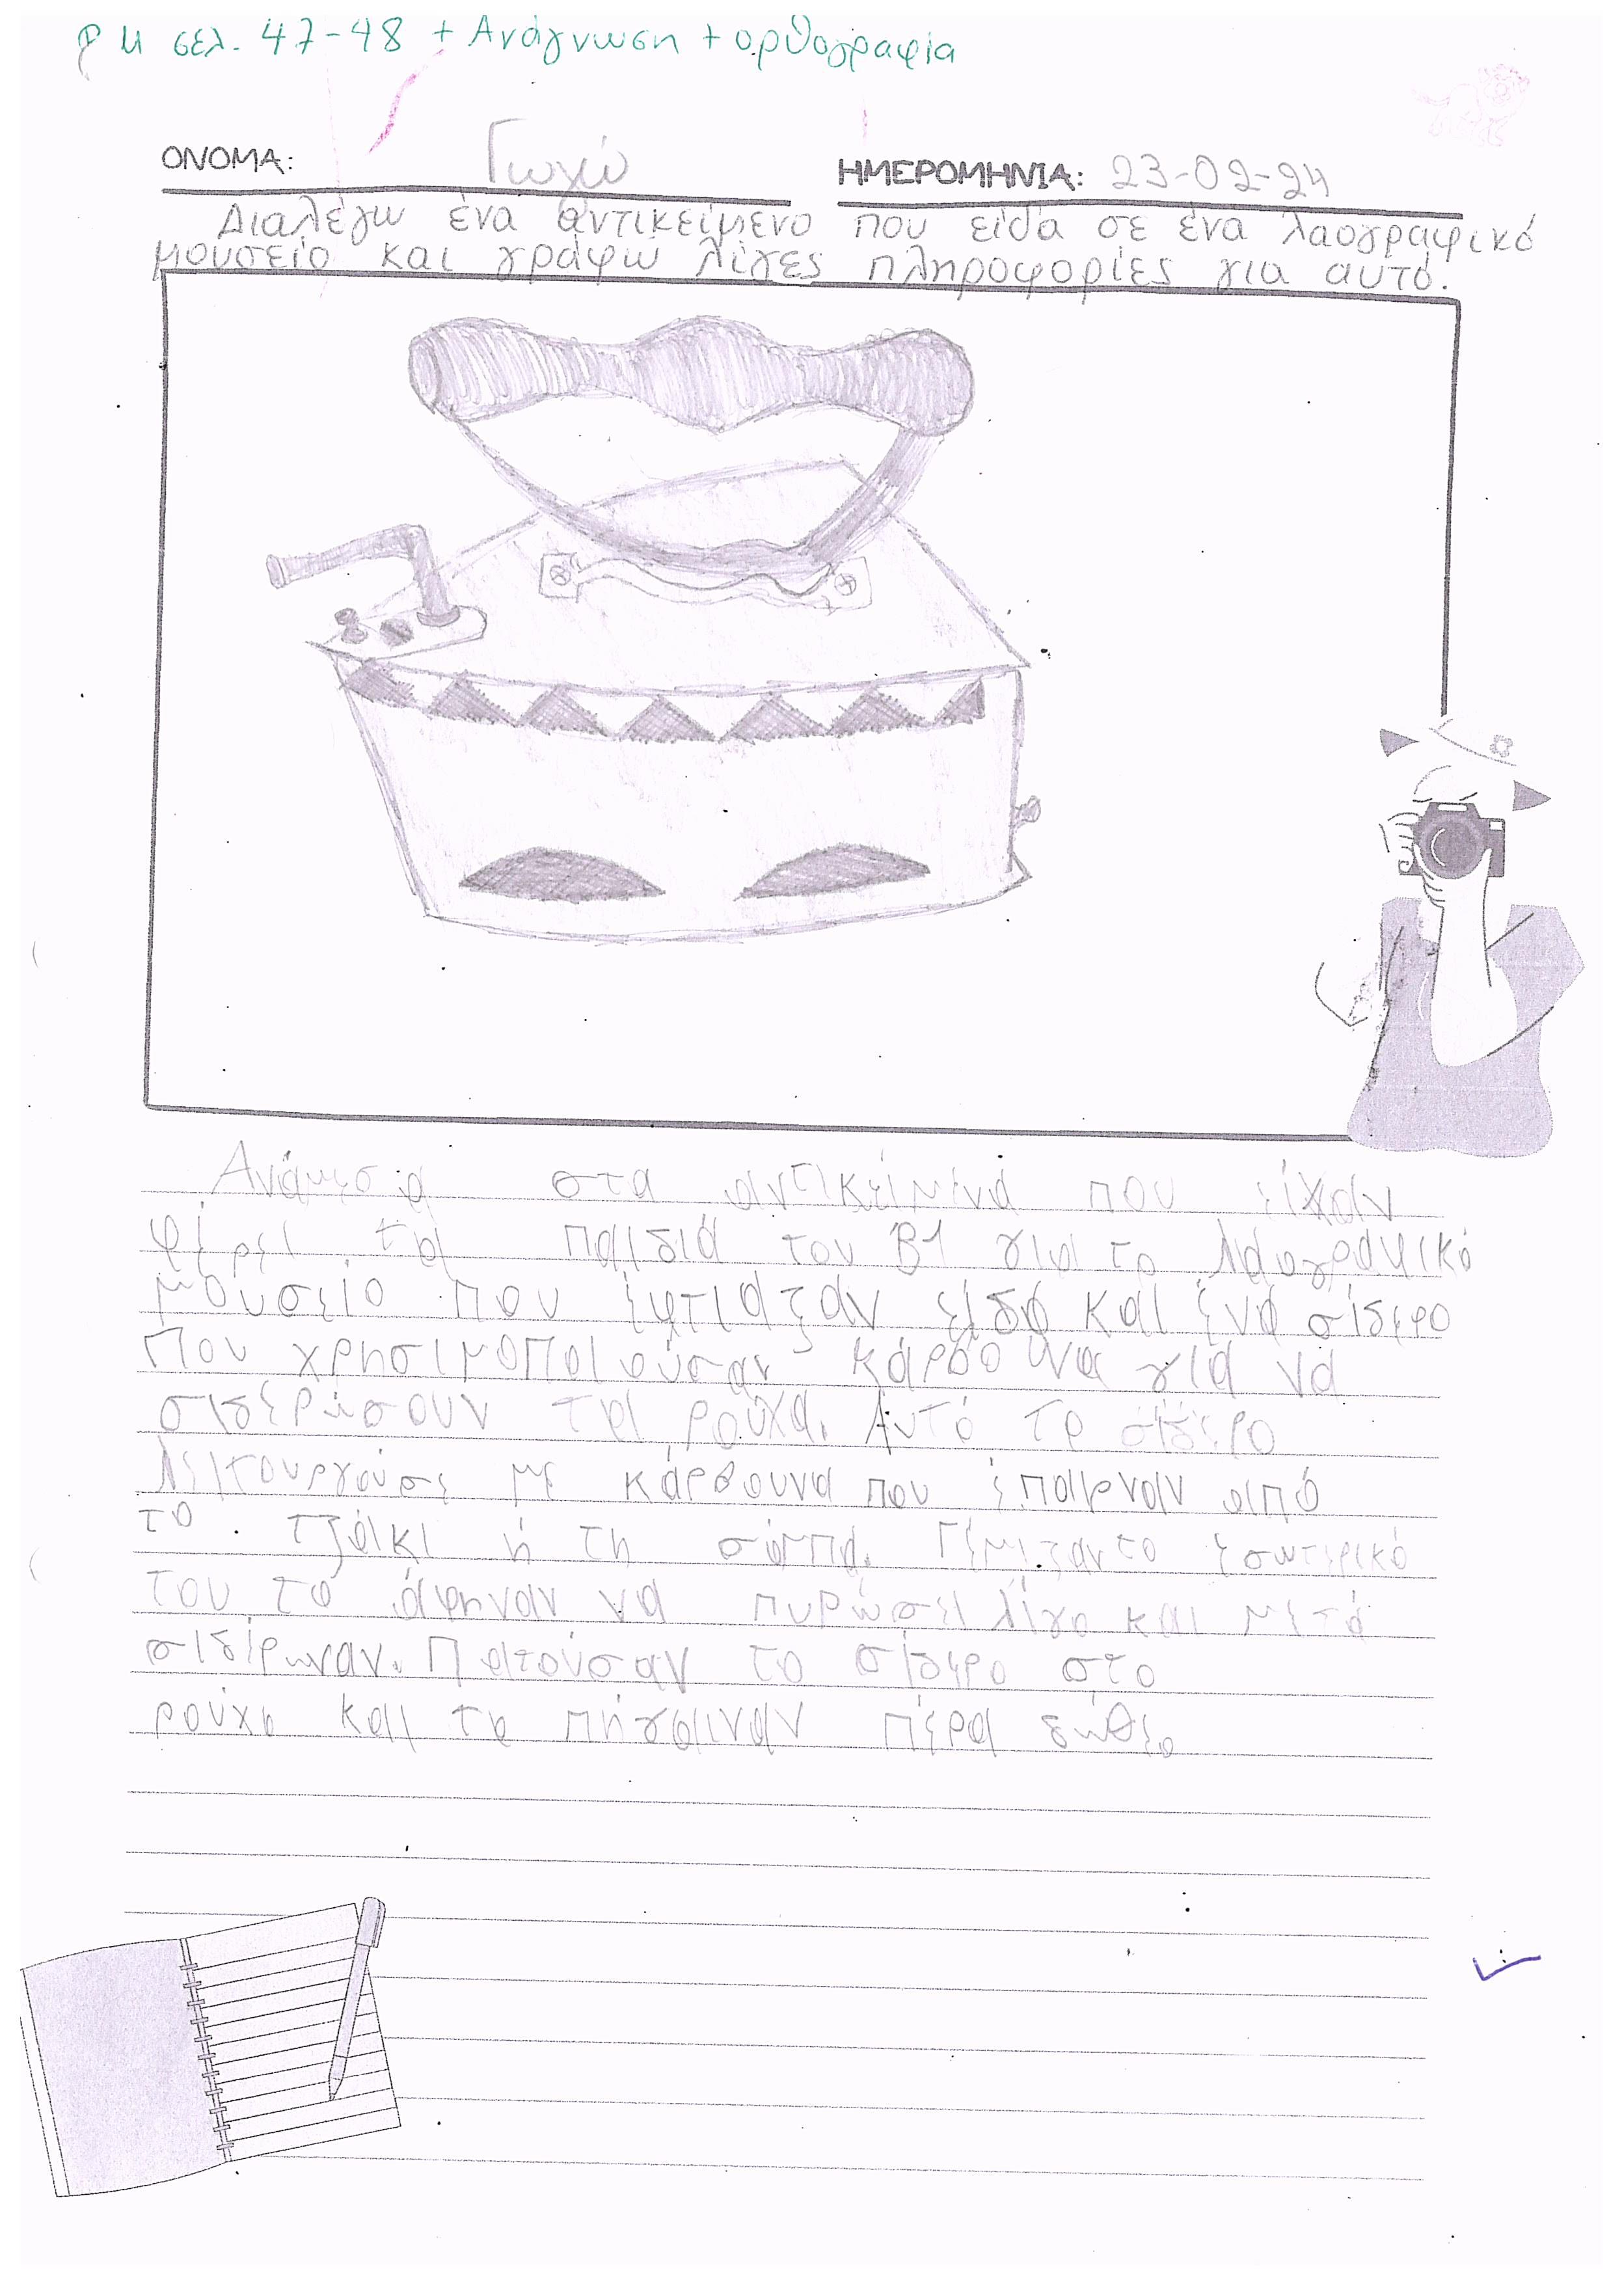 σελ. 47-48 + Ανάγνωση + ορθογραφία
ΟΝΟΜΑ: Γωγώ ΗΜΕΡΟΜΗΝΙΑ: 23-02-24
Διαλέγω ένα αντικείμενο που είδα σε ένα λαογραφικό
μουσείο και γράφω λίγες πληροφορίες για αυτό.
Ανάμεσα στα αντικείμενα που είχαν
φέρει τα παιδιά του Β1 για το λαογραφικό
μουσείο που έφτιαζαν είδα και ένα σίδερο
που χρησιμοποιούσαν κάρβουνα για να
σιδερώσουν τα ρούχα. Αυτό το σίδερο
λειτουργούσε με κάρβουνα που έπαιρναν από
το τζάκι ή τη σόμπα. Γέμιζαν το εσωτερικό
του το άφηναν να πυρώσει λίγο και μετά
σιδέρωναν. Πατούσαν το σίδερο στο
ρούχο και το πήγαιναν πέρα δώθε.